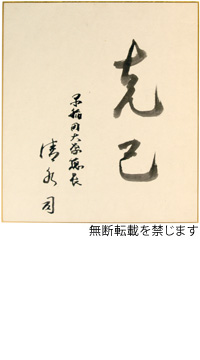 克己
早稲田大学総長
清水司
無断転載を禁じます